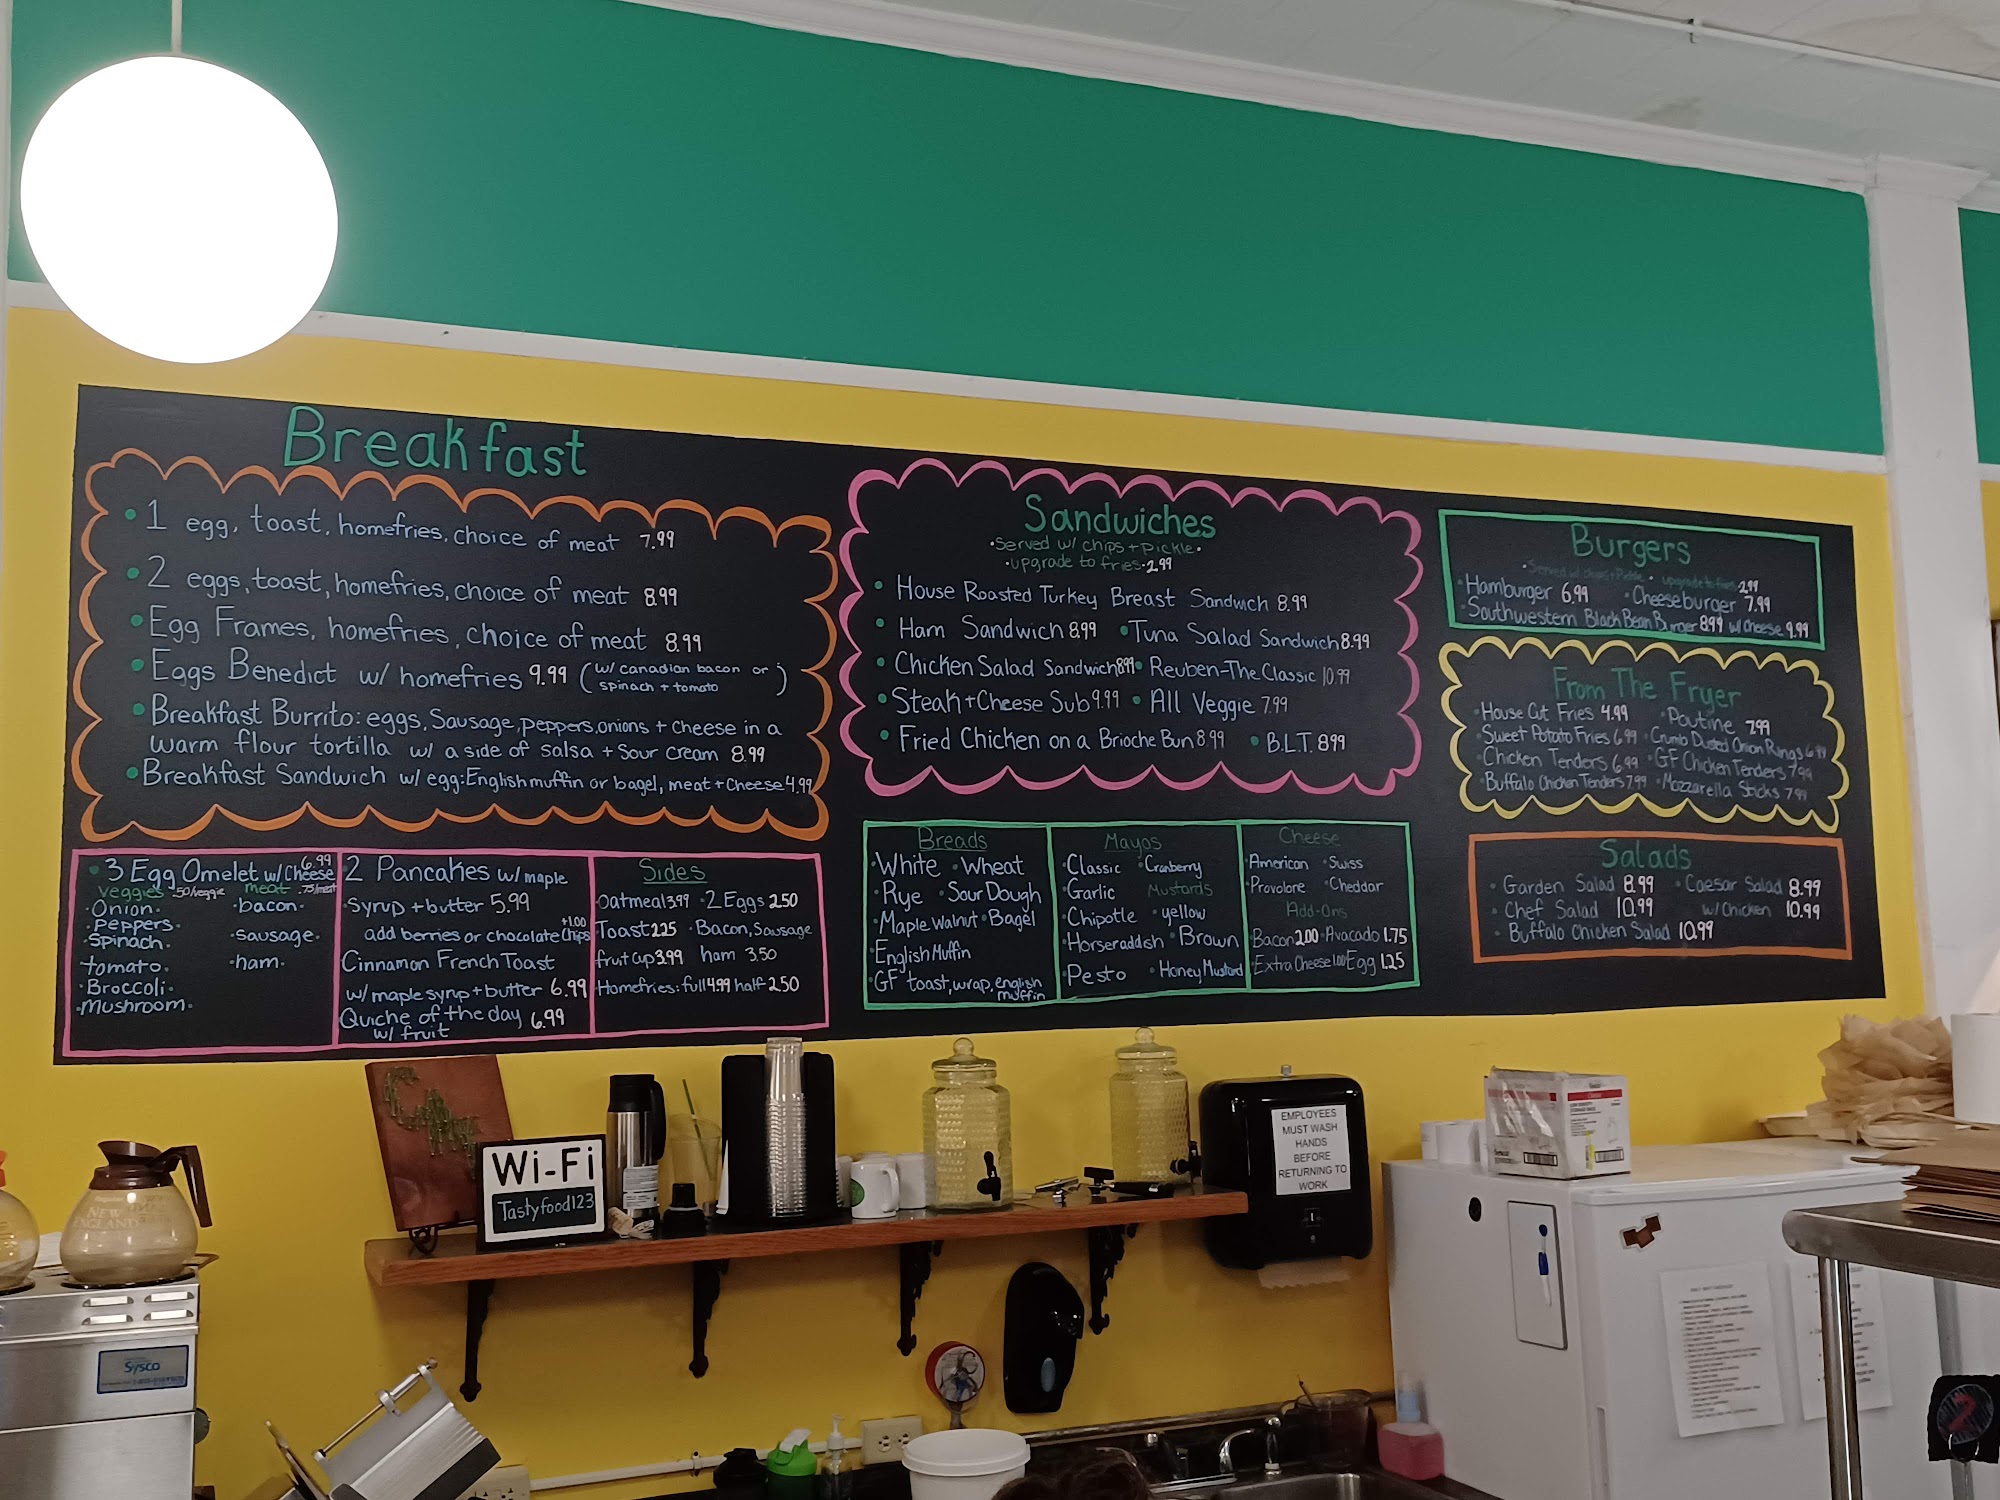 Breakfast
• 1 egg, toast, homefries, choice of meat 7.99
• 2 eggs, toast, homefries, choice of meat 8.99
• Egg Frames, homefries, choice of meat 8.99
• Eggs Benedict w/ homefries 9.99 (w/ canadian bacon or spinach + tomato)
• Breakfast Burrito: eggs, Sausage, peppers, onions + cheese in a
warm flour tortilla w/ a side of salsa + sour cream 8.99
• Breakfast Sandwich w/ egg: English muffin or bagel, meat + cheese 4.99
• 3 Egg Omelet w/ Cheese 6.99
veggies .50/veggie meat .75/meat
• Onion • bacon •
• Peppers •
• Spinach • • sausage •
• tomato • • ham •
• Broccoli •
• Mushroom •
2 Pancakes w/ maple
syrup + butter 5.99
add berries or chocolate chips +1.00
Cinnamon French Toast
w/ maple syrup + butter 6.99
Quiche of the day 6.99
w/ fruit
Sides
• Oatmeal 3.99 • 2 Eggs 2.50
• Toast 2.25 • Bacon, Sausage
• fruit cup 3.99 ham 3.50
• Homefries: full 4.99 half 2.50
Sandwiches
• Served w/ chips + pickle •
• upgrade to fries • 2.99
• House Roasted Turkey Breast Sandwich 8.99
• Ham Sandwich 8.99 • Tuna Salad Sandwich 8.99
• Chicken Salad Sandwich 8.99 • Reuben-The Classic 10.99
• Steak + Cheese Sub 9.99 • All Veggie 7.99
• Fried Chicken on a Brioche Bun 8.99 • B.L.T. 8.99
Breads
• White • Wheat
• Rye • Sour Dough
• Maple Walnut • Bagel
• English Muffin
• GF toast, wrap, english muffin
Mayos
• Classic • Cranberry
• Garlic Mustards
• Chipotle • yellow
• Horseraddish • Brown
• Pesto • Honey Mustard
Cheese
• American • Swiss
• Provolone • Cheddar
Add-Ons
• Bacon 2.00 • Avacado 1.75
• Extra Cheese 1.00 Egg 1.25
Burgers
• Served w/ chips + Pickle • upgrade to fries 2.99
• Hamburger 6.99 • Cheeseburger 7.99
• Southwestern Black Bean Burger 8.99 w/ cheese 9.99
From The Fryer
• House Cut Fries 4.99 • Poutine 7.99
• Sweet Potato Fries 6.99 • Crumb Dusted Onion Rings 6.99
• Chicken Tenders 6.99 • GF Chicken Tenders 7.99
• Buffalo Chicken Tenders 7.99 • Mozzarella Sticks 7.99
Salads
• Garden Salad 8.99 • Caesar Salad 8.99
• Chef Salad 10.99 w/ Chicken 10.99
• Buffalo Chicken Salad 10.99
Wi-Fi
Tastyfood123
EMPLOYEES
MUST WASH
HANDS
BEFORE
RETURNING TO
WORK
NEW
ENGLAND
Sysco